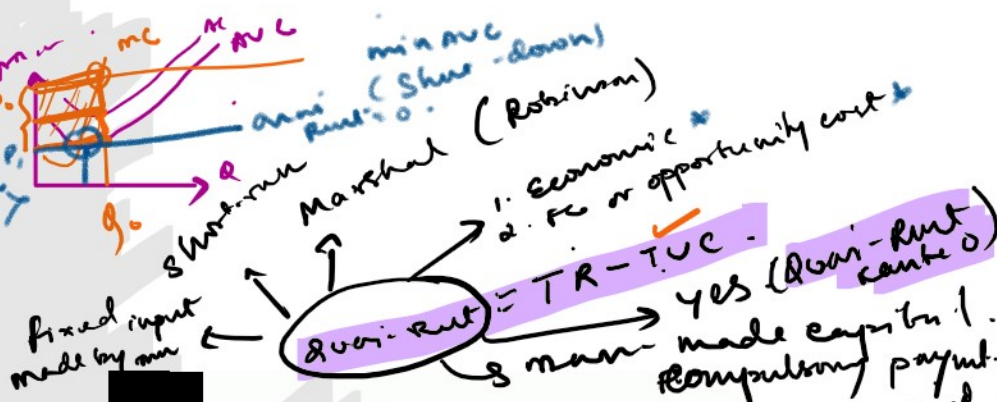 MC
AC
AVC
min AVC
(Shut-down)
Quasi
Rent = 0
P₁
Q
q₀
short-run
Marshal (Robinson)
1. Economic *
2. FC or opportunity cost *
Quasi-Rent = TR - TVC.
Fixed input
made by man
yes (Quasi-Rent
can be 0)
man-made capital.
compulsory paymt.